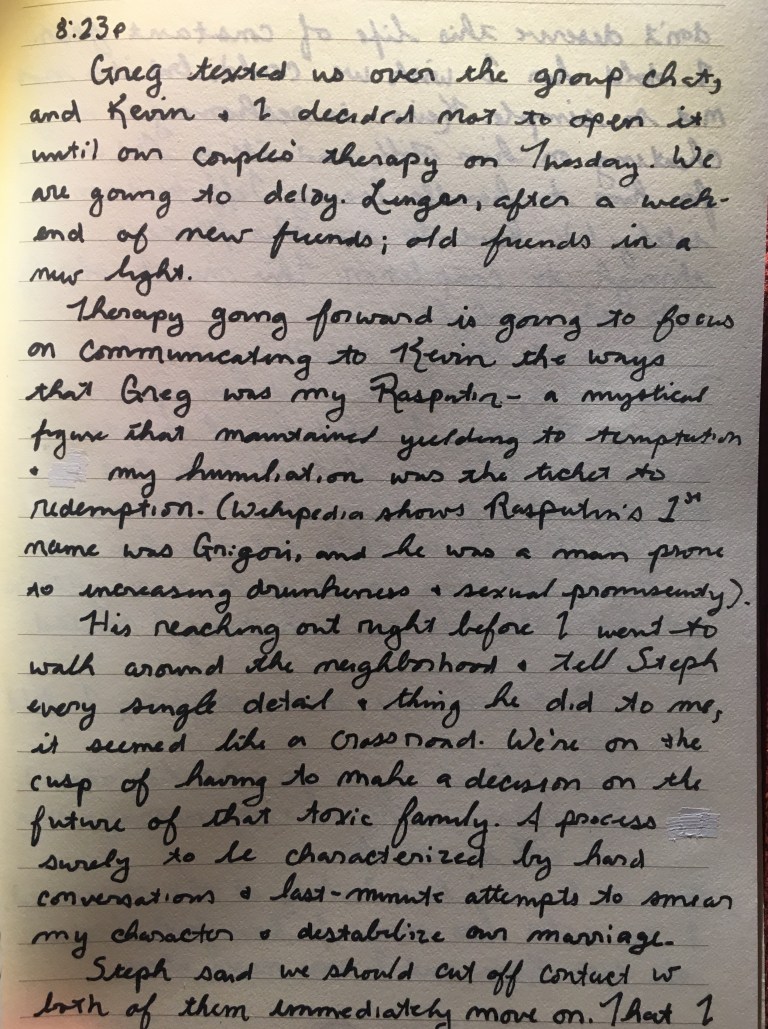 8:23p
Greg texted us over the group chat,
and Kevin & I decided not to open it
until our couples' therapy on Tuesday. We
are going to delay. Linger, after a week-
end of new friends; old friends in a
new light.
Therapy going forward is going to focus
on communicating to Kevin the ways
that Greg was my Rasputin- a mystical
figure that maintained yielding to temptation
& my humiliation was the ticket to
redemption. (Wikipedia shows Rasputin's 1st
name was Grigori, and he was a man prone
to increasing drunkeness & sexual promiscuity).
His reaching out right before I went to
walk around the neighborhood & tell Steph
every single detail & thing he did to me,
it seemed like a crossroad. We're on the
cusp of having to make a decision on the
future of that toxic family. A process
surely to be characterized by hard
conversations & last-minute attempts to smear
my character & destabilize our marriage.
Steph said we should cut off contact w
both of them immediately move on. That I